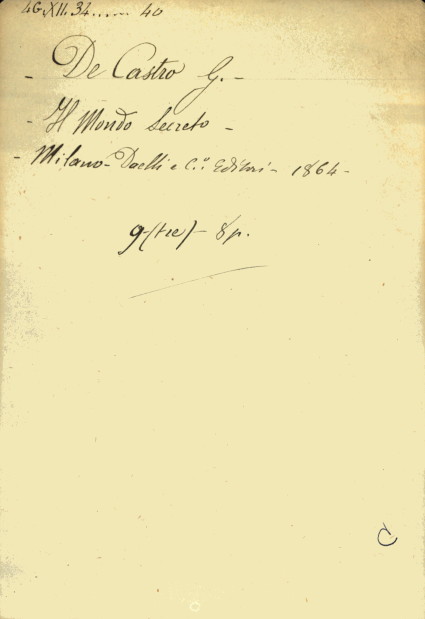 46.XII.34...... 40
- De Castro G. -
- Il Mondo Secreto -
- Milano - Daelli e C.º Editori - 1864 -
9-(tre)- 8 p.
C